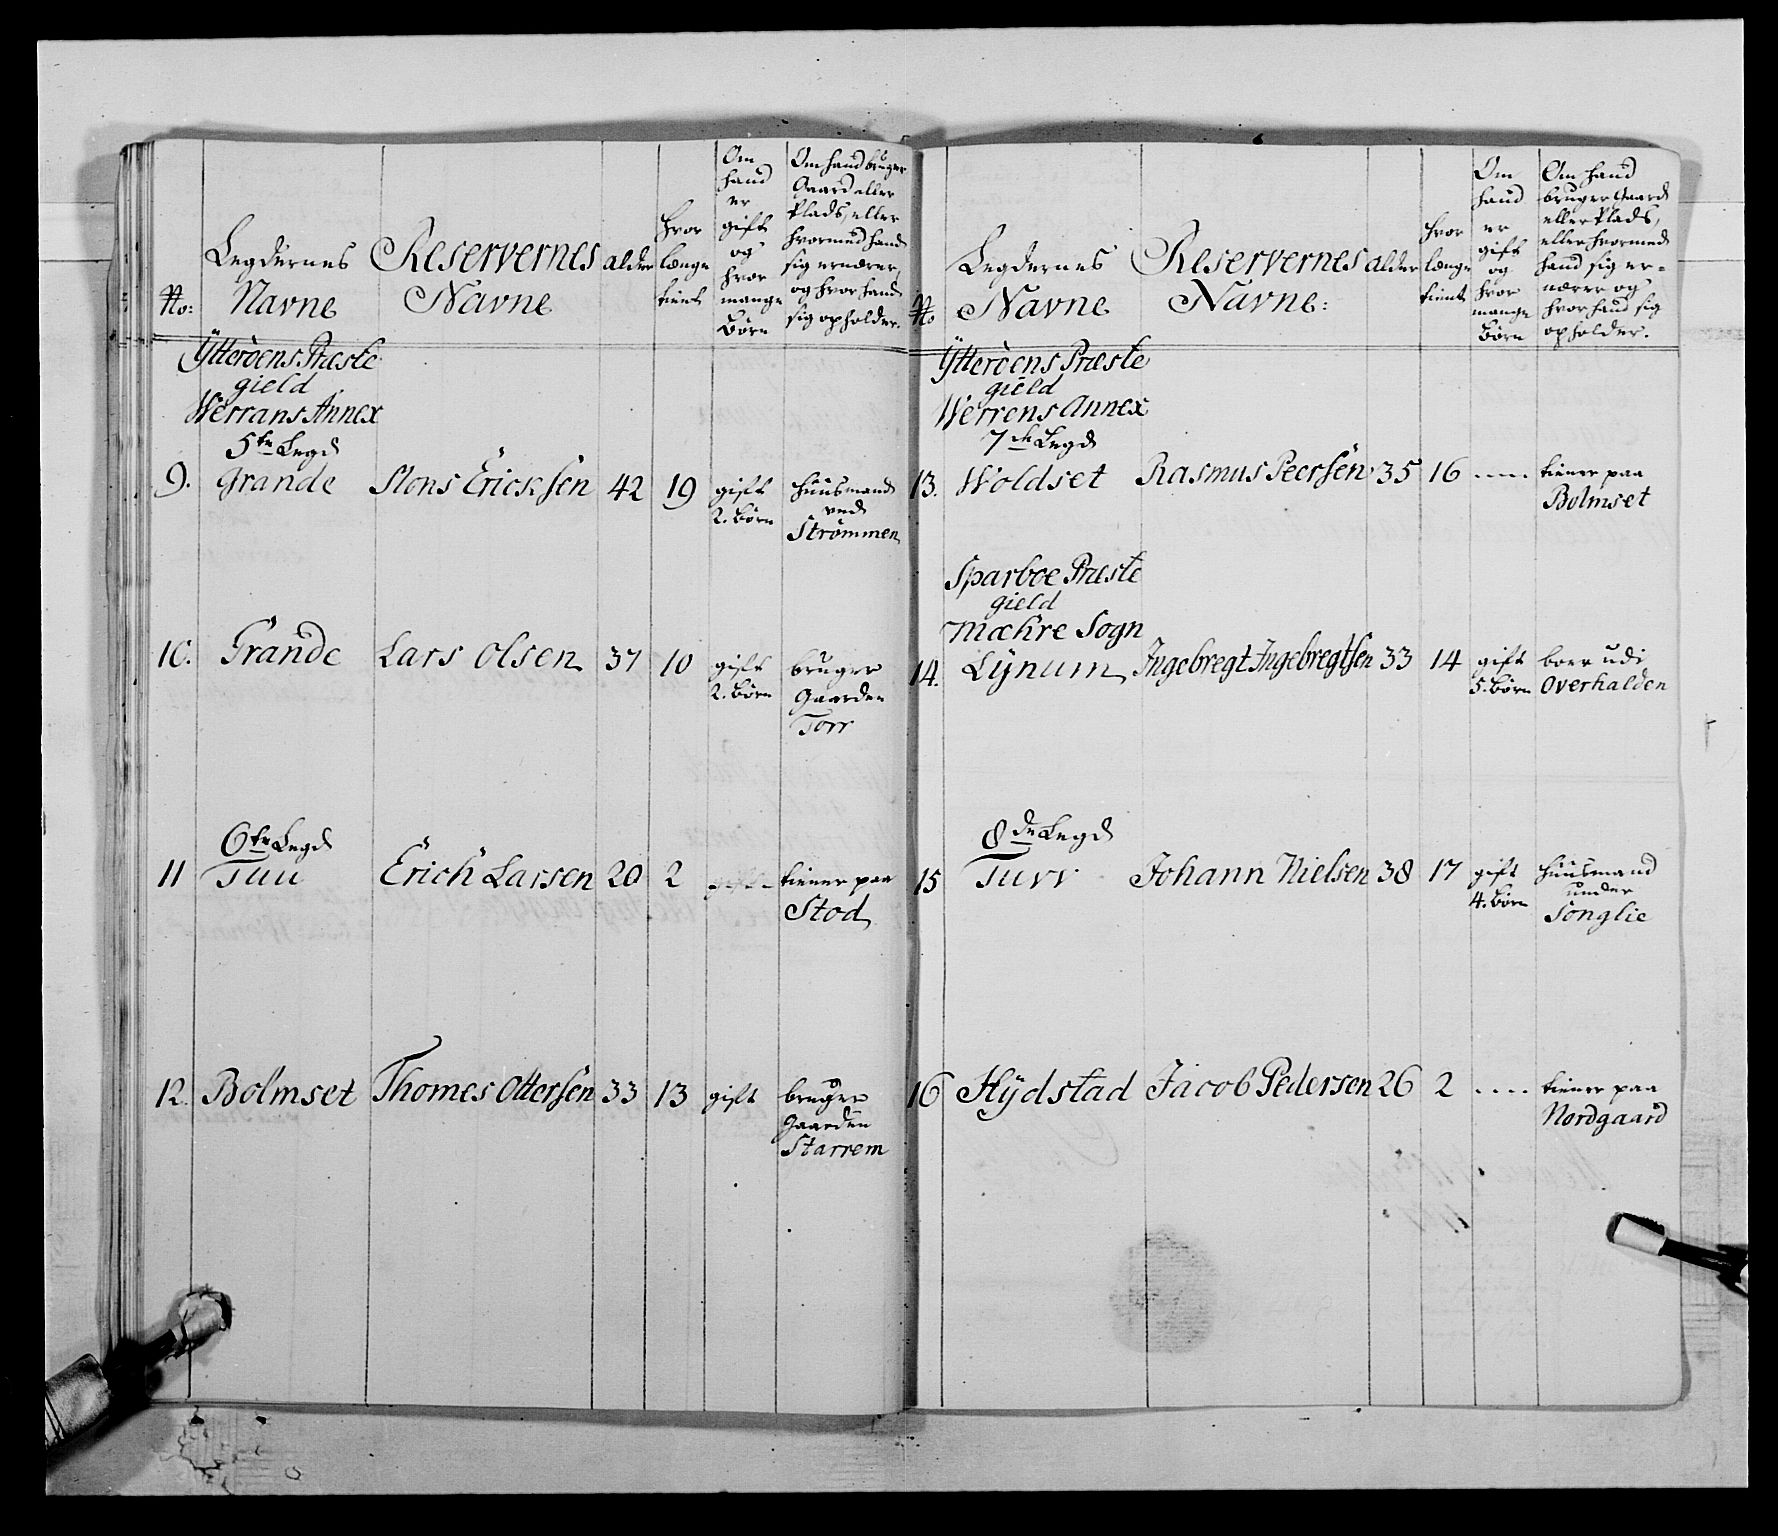 No:
Legdernes Navne
Reservernes Navne
alder
hvor længe tient
Om hand er gift og hvor mange Børn
Om hand bruger Gaard eller Plads, eller hvormed hand sig ernærer, og hvor hand sig opholder.
Ÿtterøens Præste
gield
Werrans Annex
5te Legd
9. Grande Mons Ericksen 42 19 gift huusmand
2. Børn ved
Strømmen
10. Grande Lars Olsen 37 10 gift bruger
2. Børn Gaarden
Torr
6te Legd
11 Tuu Erich Larsen 20 2 tiener paa
Stod
12. Bolmset Thomes Ottersen 33 13 gift bruger
Gaarden
Starrem
No
Legdernes Navne
Reservernes Navne:
alder
hvor længe tient
Om hand er gift og hvor mange Børn
Om hand bruger Gaard eller Plads, eller hvormed hand sig ernærer og hvor hand sig opholder.
Ÿtterøens Præste
gield
Werrens Annex
7de Legd
13. Woldset Rasmus Peersen 35 16 ---- tiener paa
Bolmset
Sparboe Præste
gield
Mæhre Sogn
14. Lÿnum Ingebregt Ingebregtsen 33 14 gift boer udi
5. Børn Overhalden
8de Legd
15 Turr Johann Nielsen 38 17 gift huusmand
4. Børn under
Songlie
16 Hÿdstad Jacob Pedersen 26 2 ---- tiener paa
Nordgaard